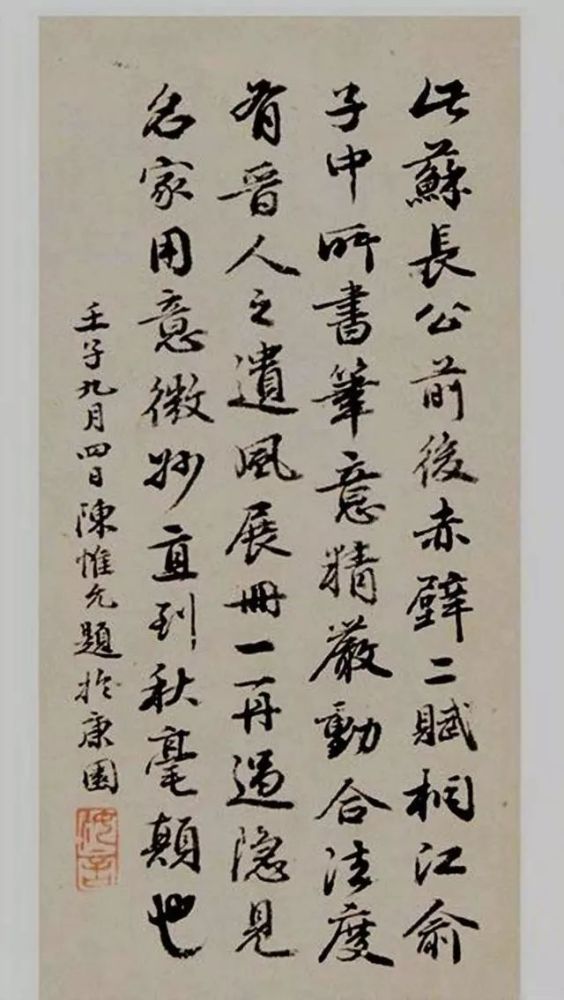 此蘇長公前後赤壁二賦桐江俞
子中所書筆意精嚴動合法度
有晉人之遺風展冊一再過隐見
名家用意微妙直到秋毫顛也
壬子九月四日陳惟允題於康園